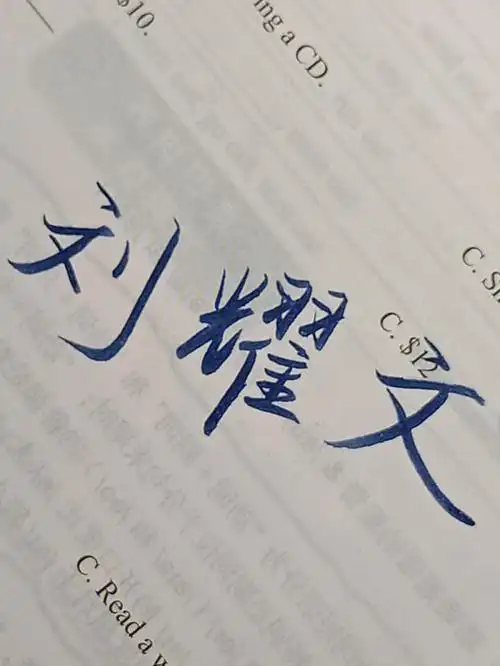 $10.
ing a CD.
刘耀文
C. $12
C. Sh
C. Read a w